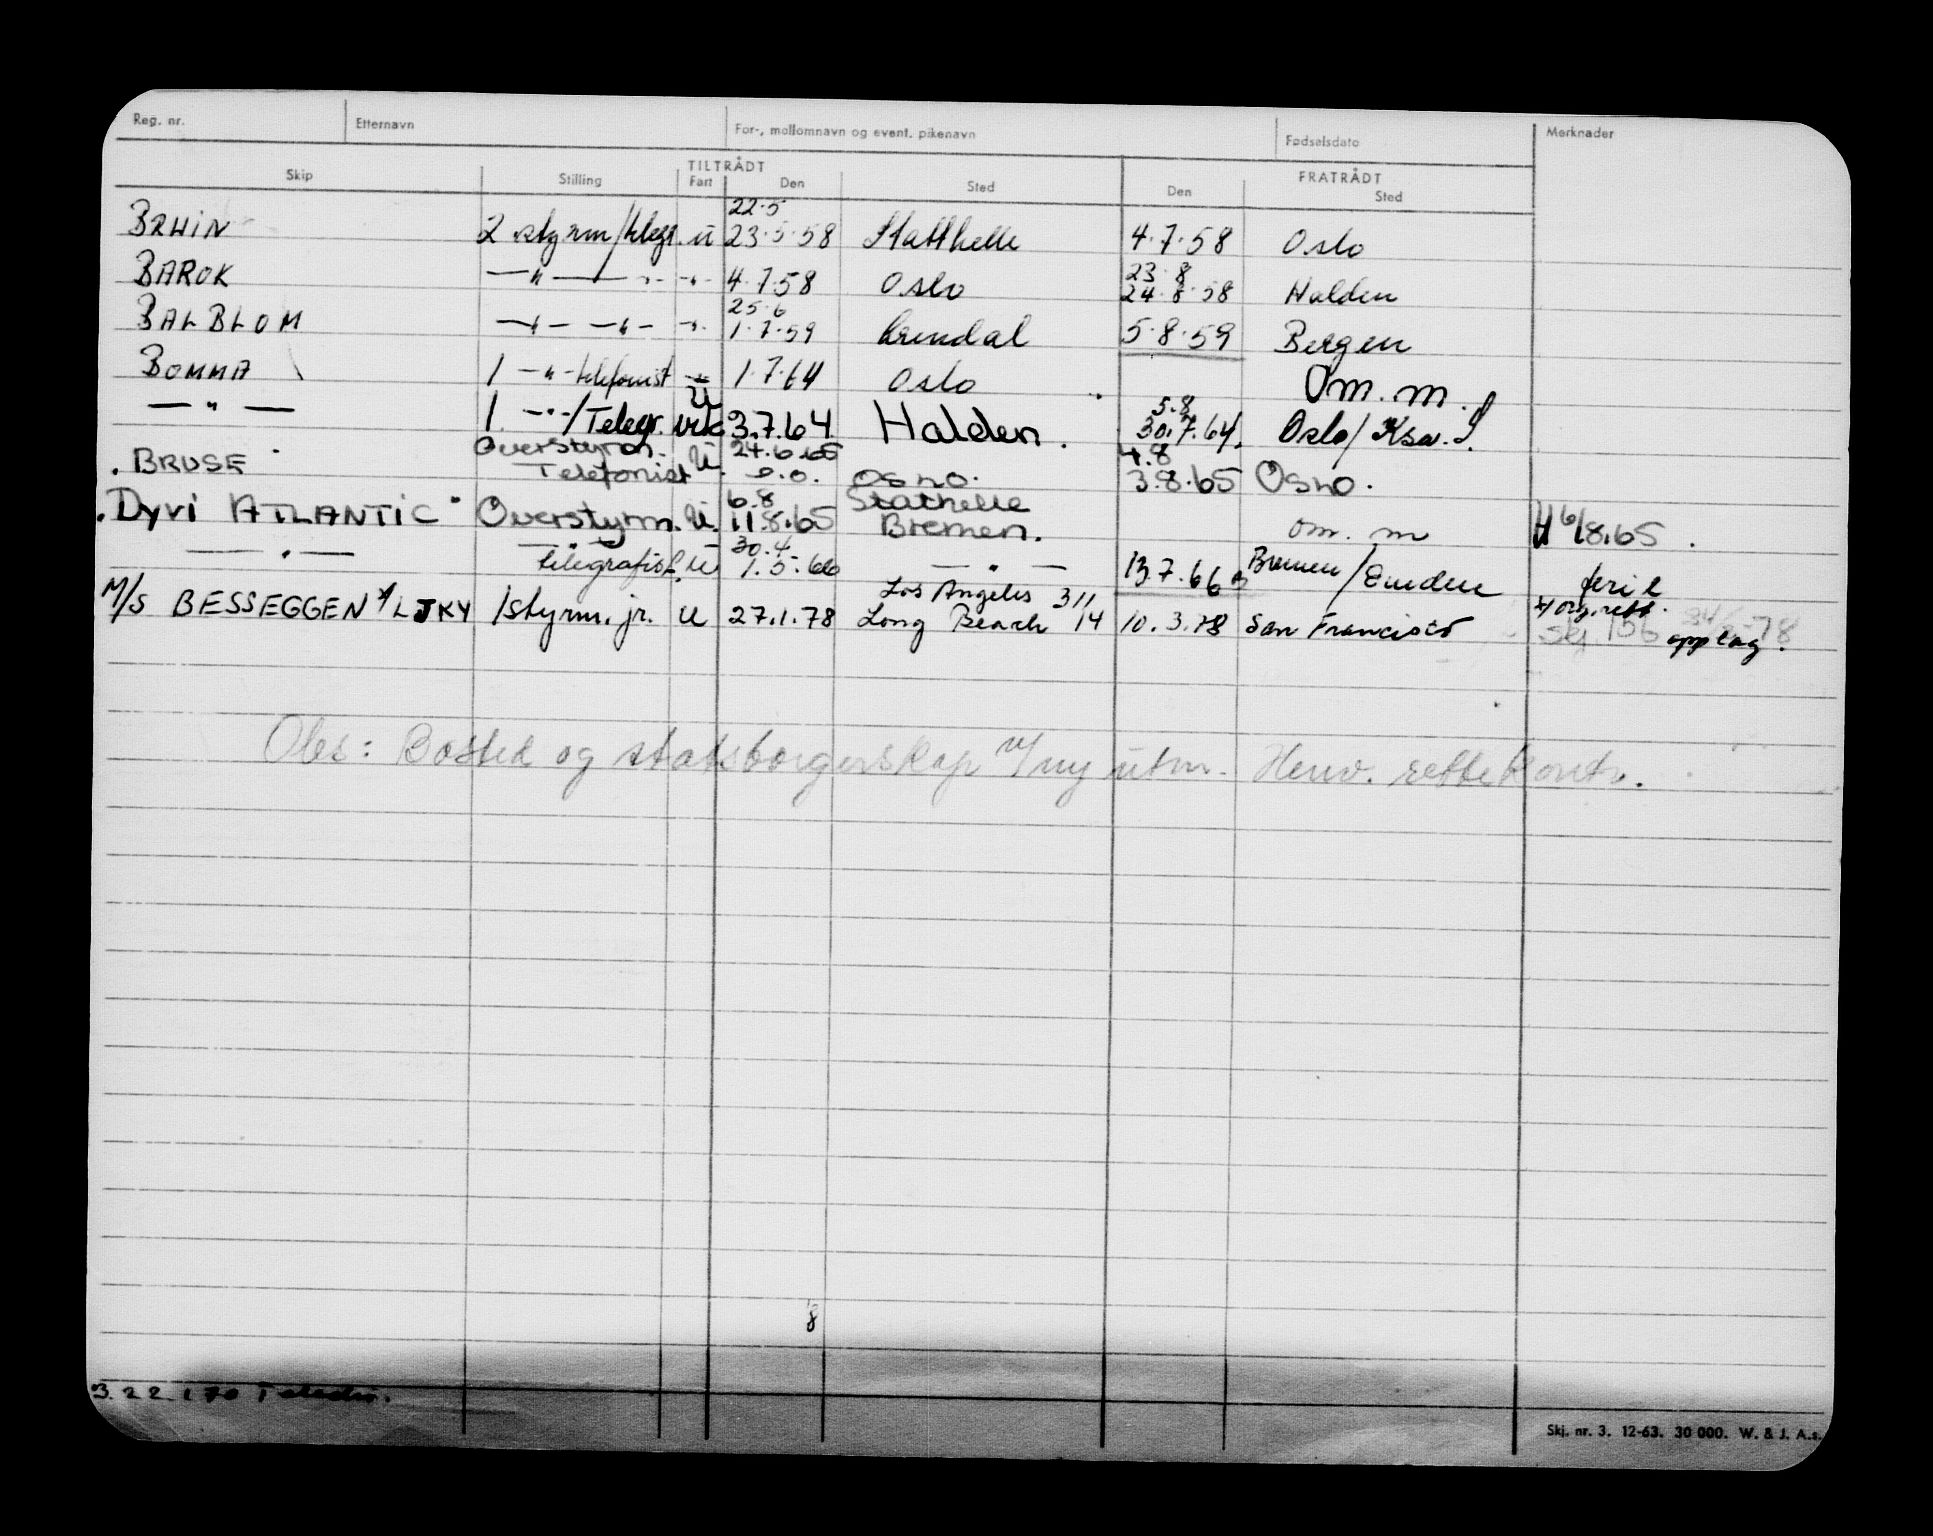 Reg. nr. Etternavn For-, mellomnavn og event. pikenavn Fødselsdato Merknader
TILTRÅDT FRATRÅDT
Skip Stilling Fart Den Sted Den Sted
22.5
BRUIN 2 styrm/telegr. u 23.5.58 Statthelle 4.7.58 Oslo
23.8
BAROK —"— " -"- 4.7.58 Oslo 24.8.58 Halden
25.6
BALBLOM —"— —"— -"- 1.7.59 Arendal 5.8.59 Bergen
BOMMA 1 -"- telefonist -"- 1.7.64 Oslo Om. m.
5.8
— " — 1. -"-/Telegr. u 3.7.64 Halden. 30.7.64. Oslo/
Overstyrm. 24.6.65 4.8
. BRUSE Telefonist u. Oslo. 3.8.65 Oslo.
6.8 Stathelle
. DYVI ATLANTIC Overstyrm. U. 11.8.65 Bremen. om. m 6/8.65.
30.4
— " — telegrafist u 1.5.66 — " — 13.7.66 Bremen/Emden ferie
Los Angeles 31/1
M/S BESSEGGEN LJKY 1styrm. jr. u 27.1.78 Long Beach 14 10.3.78 San Francisco opplag.
Obs: Bosted og statsborgerskap v/ny utm. Henv. rettekontr.
8
3.22.1.70
Skj. nr. 3. 12-63. 30 000. W. & J. A.s.